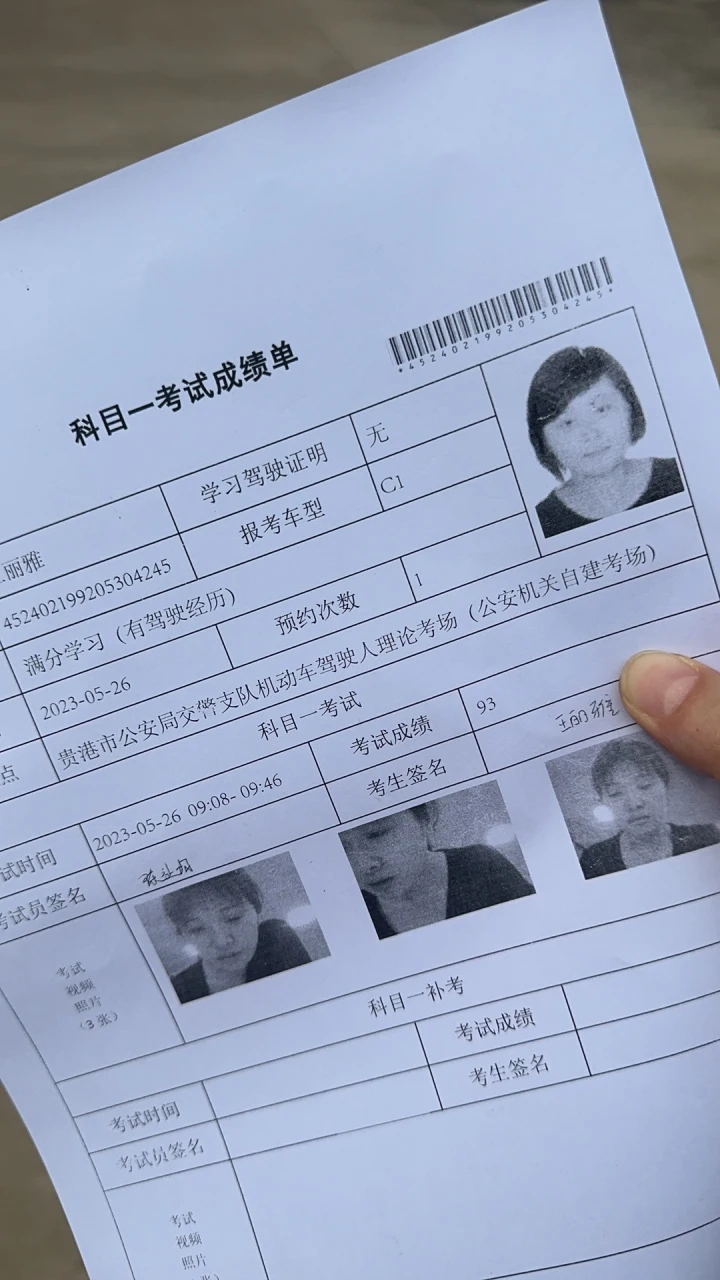 *452402199205304245*
科目一考试成绩单
学习驾驶证明 无
丽雅 报考车型 C1
452402199205304245
满分学习（有驾驶经历） 预约次数 1
2023-05-26
点 贵港市公安局交警支队机动车驾驶人理论考场（公安机关自建考场）
科目一考试
试时间 2023-05-26 09:08- 09:46 考试成绩 93
考试员签名 考生签名 王丽雅
考试
视频
照片
（3张）
科目一补考
考试时间 考试成绩
考试员签名 考生签名
考试
视频
照片
张）